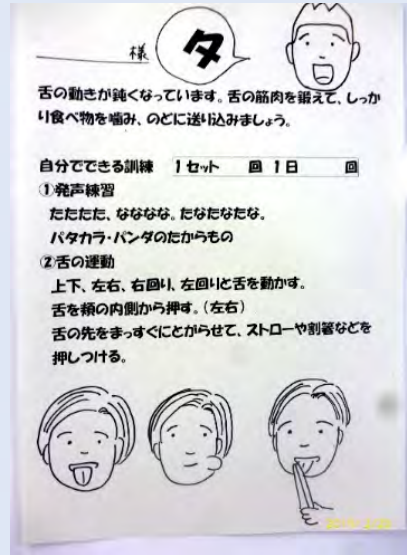 様
タ
舌の動きが鈍くなっています。舌の筋肉を鍛えて、しっか
り食べ物を噛み、のどに送り込みましょう。
自分でできる訓練 1セット 回 1日 回
①発声練習
たたたた、なななな。たなたなたな。
パタカラ・パンダのたからもの
②舌の運動
上下、左右、右回り、左回りと舌を動かす。
舌を頬の内側から押す。(左右)
舌の先をまっすぐにとがらせて、ストローや割箸などを
押しつける。